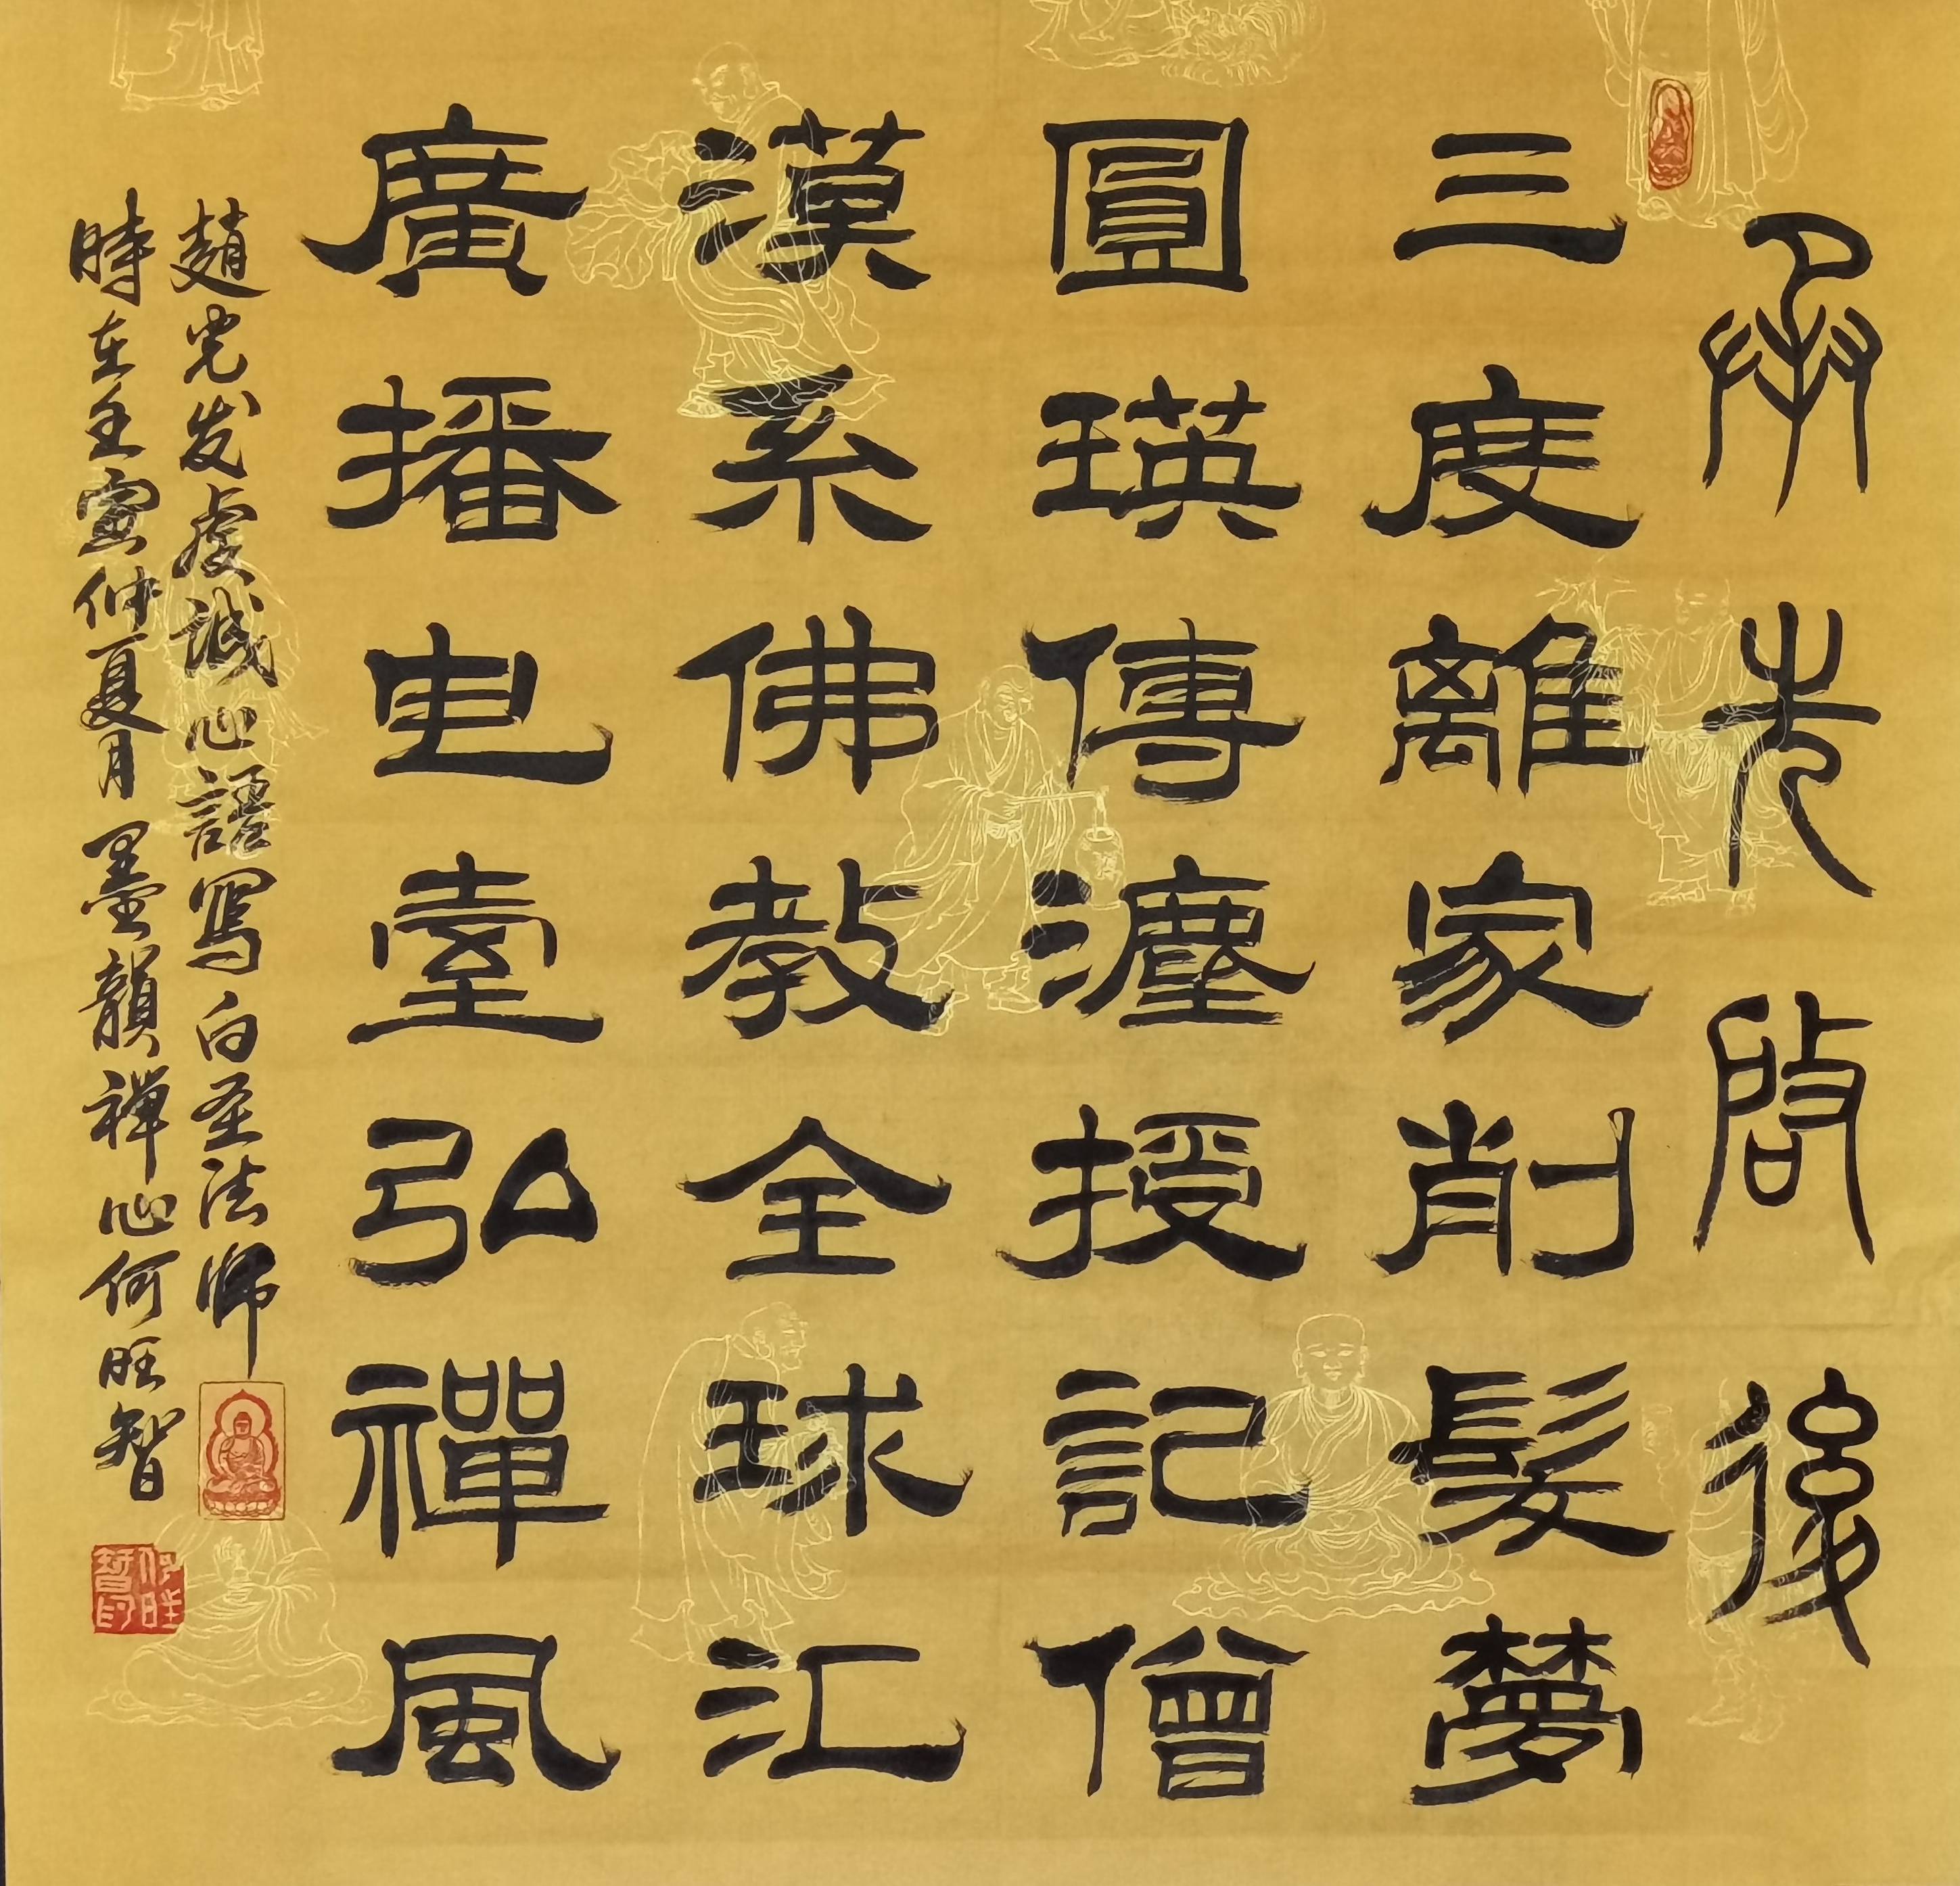 承先啟後
三度離家削髮夢
圓瑛傳灋授記僧
漢系佛教全球汇
廣播电臺弘禪風
趙光发虔誠心語寫白圣法师
時在壬寅仲夏月墨韻禪心何旺智
何旺智印